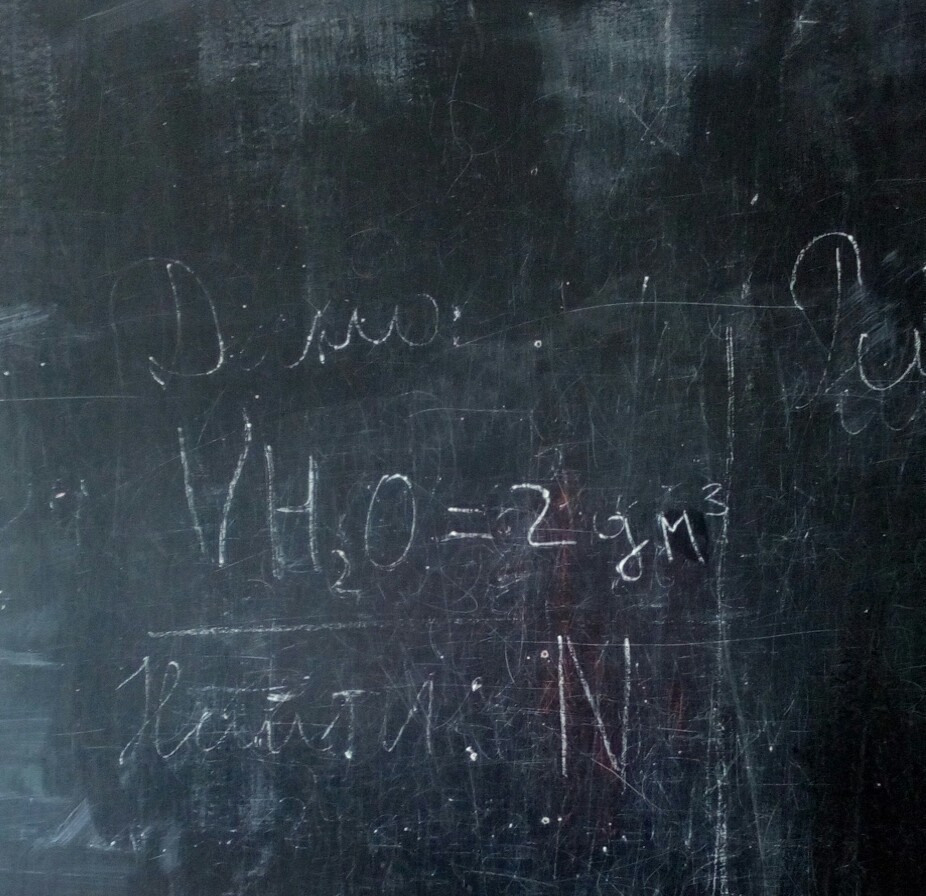 Дано: Ре
VH₂O = 2 дм³
Найти: N